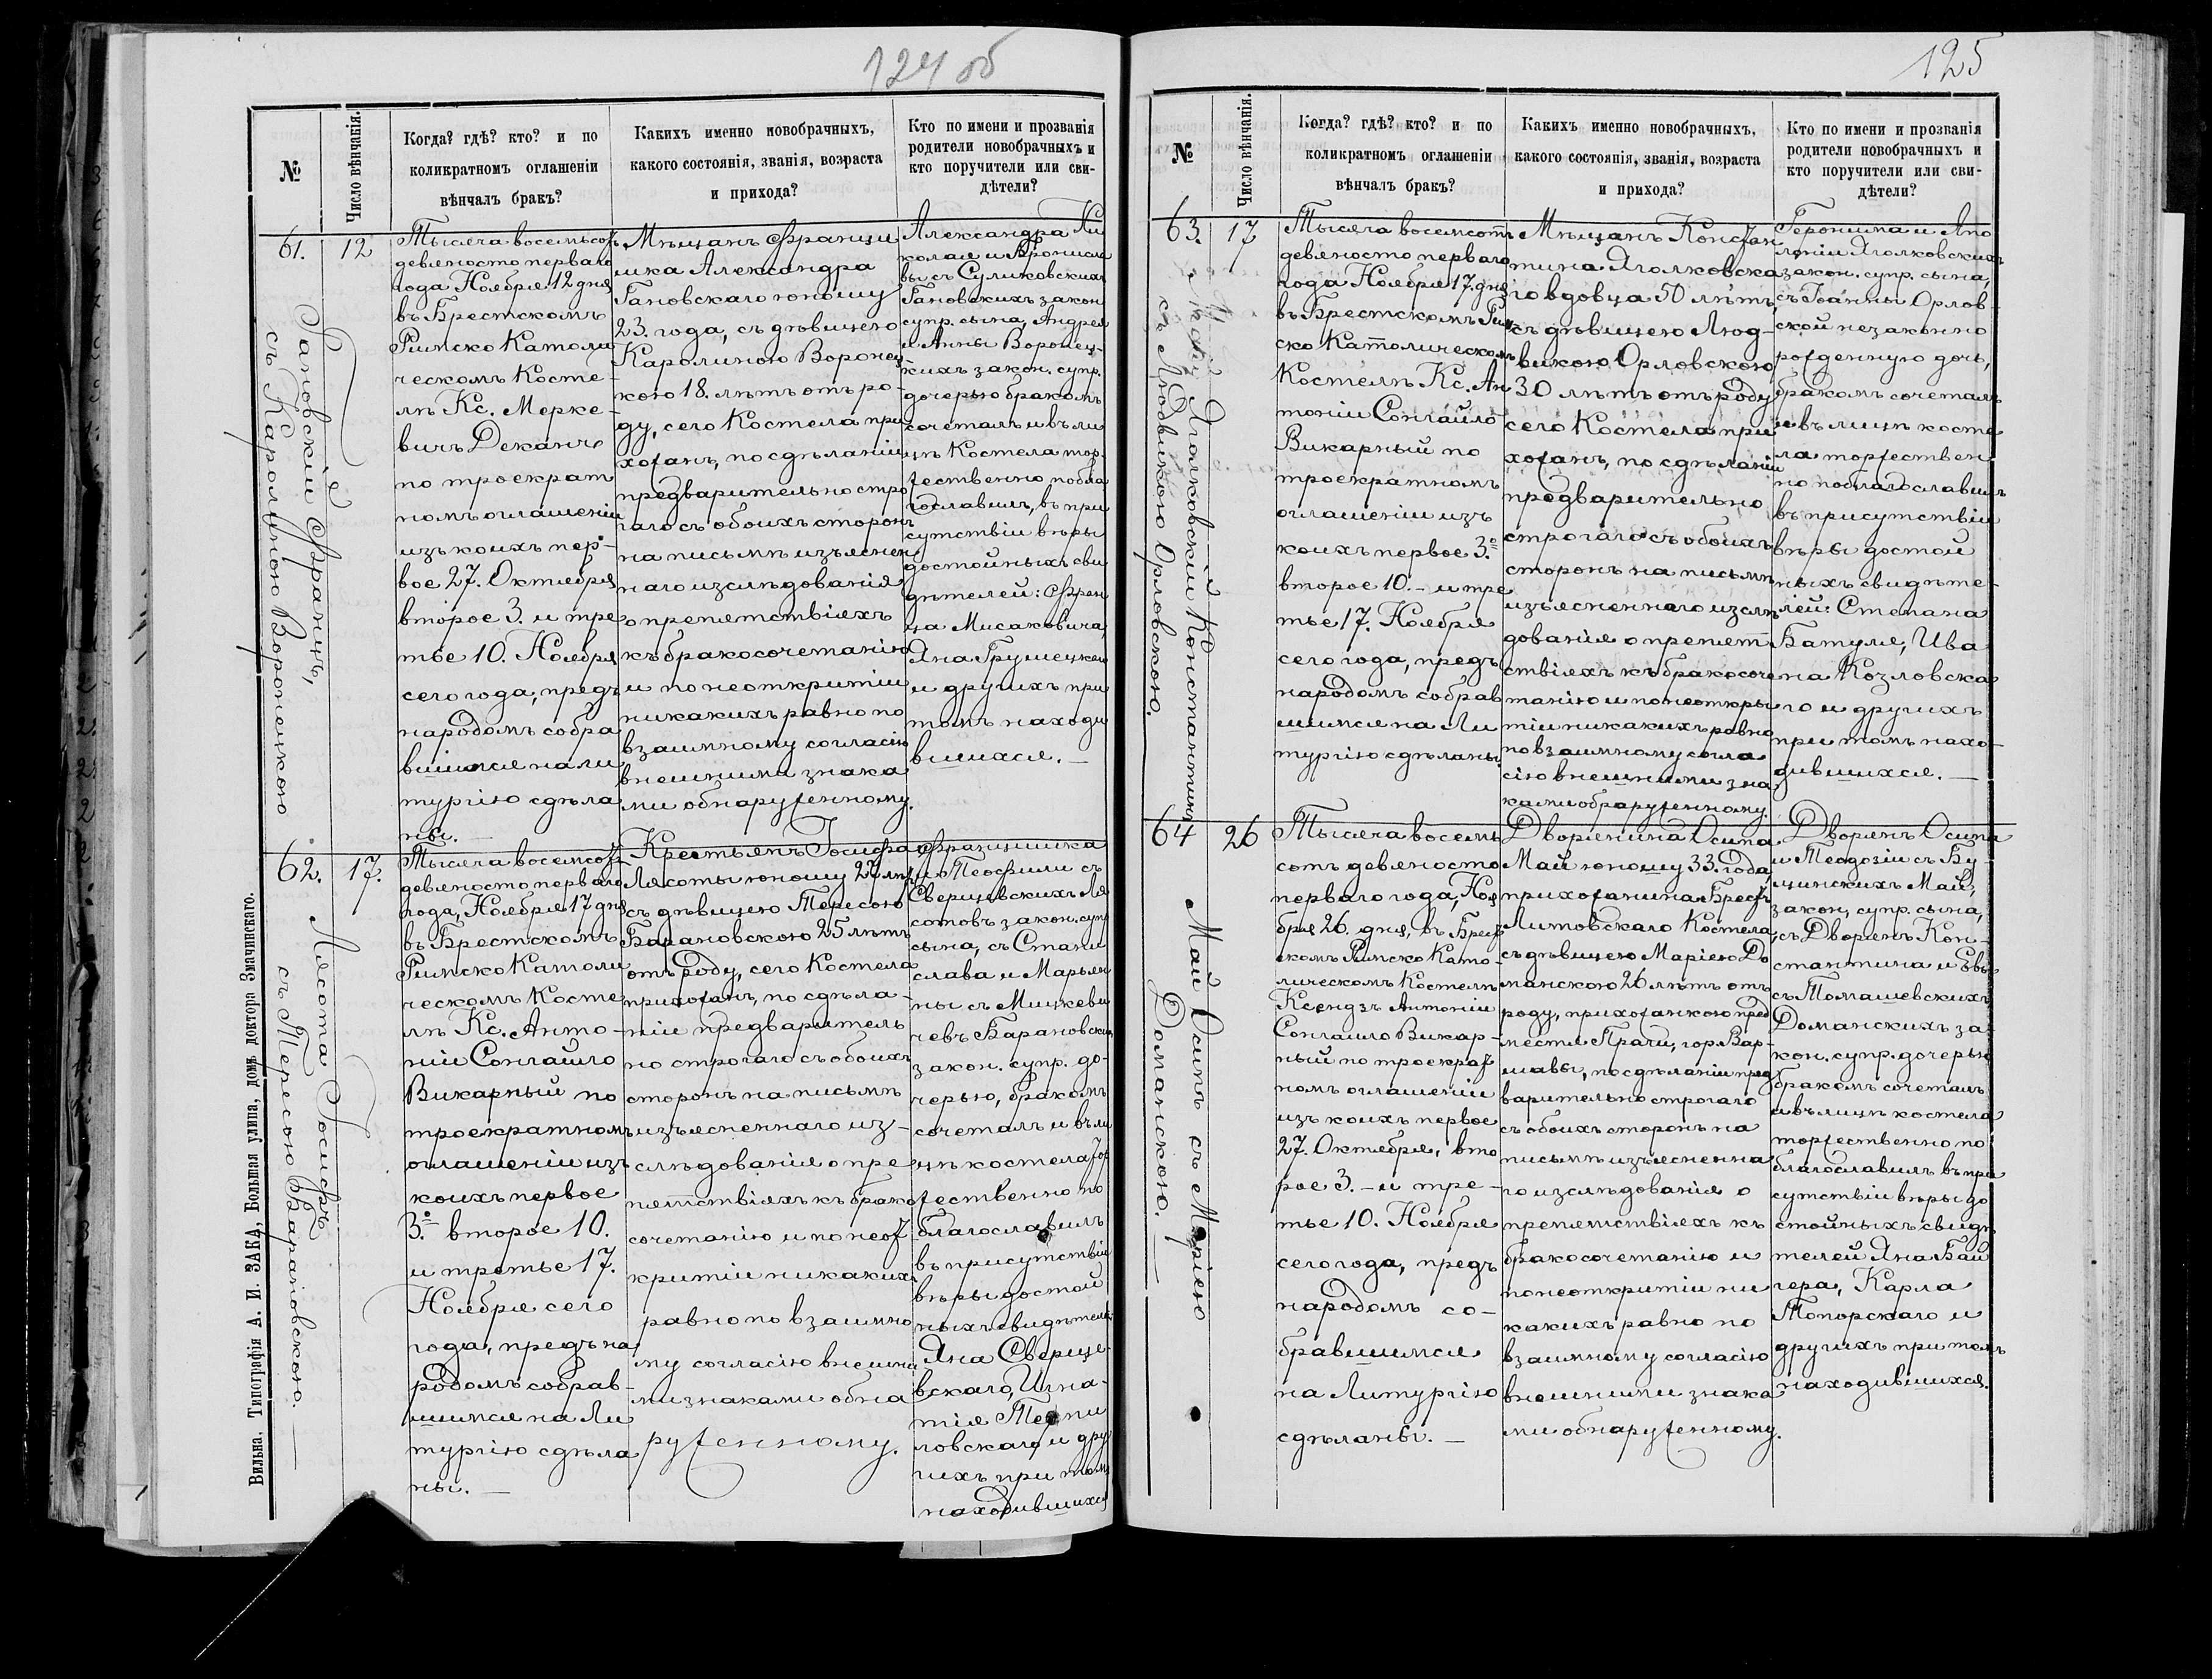 124 об
№
Число вѣнчанія.
Когда? гдѣ? кто? и по
коликратномъ оглашеніи
вѣнчалъ бракъ?
Какихъ именно новобрачныхъ,
какого состоянія, званія, возраста
и прихода?
Кто по имени и прозванія
родители новобрачныхъ и
кто поручители или сви-
дѣтели?
61.
12
Гановскій Францъ,
съ Каролиною Воронецкою
Тысяча восемьсотъ
девяносто перваго
года Ноября 12 дня
въ Брестскомъ
Римско Католи
ческомъ Косте-
лѣ Кс. Мерке-
вичъ Деканъ
по троекрат
номъ оглашеніи
изъ коихъ пер-
вое 27. Октября
второе 3. и тре
тье 10. Ноября
сего года, предъ
народомъ собра
вшимся на ли
тургію сдѣла
ны. —
Мѣщанъ Франци
шка Александра
Гановскаго юношу
23. года, съ дѣвицею
Каролиною Воронец-
кою 18. лѣтъ отъ ро-
ду, сего Костела при
хожанъ, по сдѣланіи
предварительно стро
гаго съ обоихъ сторонъ
на письмѣ изъяснен
наго изслѣдованія
о препятствіяхъ
къ бракосочетанію
и по неоткритіи
никакихъ равно по
взаимному согласію
внешними знака
ми обнаруженному.
Александра Ни
колая и Брониcла
вы съ Суликовскихъ
Гановскихъ закон.
супр. сына, Андрея
и Анны Воронец-
кихъ закон. супр.
дочерью бракомъ
сочеталъ и въ ли
цѣ Костела тор-
жественно побла
гославилъ, въ при
сутствіи вѣры
достойныхъ сви
дѣтелей: Фран
ца Мисаковича,
Яна Грушецкаго
и другихъ при
томъ находи
вшихся. —
62.
17.
Лясота Іосифъ
съ Тересою Барановскою. —
Тысяча восемсотъ
девяносто перваго
года, Ноября 17 дня
въ Брестскомъ
Римско Католи
ческомъ Косте
лѣ Кс. Анто-
ній Сонгайло
Викарный по
троекратномъ
оглашеніи изъ
коихъ первое
3.о второе 10.
и третье 17.
Ноября сего
года, предъ на
родомъ собрав-
шимся на Ли
тургію сдѣла
ны. —
Крестьянъ Іосифа
Лясоты юношу 27 лѣтъ
съ дѣвицею Тересою
Барановскою 25 лѣтъ
отъ роду, сего Костела
прихожанъ, по сдѣла-
ніи предваритель
но строгаго съ обоихъ
сторонъ на письмѣ
изъясненнаго из-
слѣдованія о пре
пятствіяхъ къ брако
сочетанію и по неот
критіи никакихъ
равно по взаимно
му согласію внешни
ми знаками обна
руженному.
Францишка
и Теофили съ
Сверщевскихъ Ля
сотовъ закон. супр
сына, съ Стани
слава и Марьян
ны съ Мицкеви
чевъ Барановскихъ
закон. супр. до-
черью, бракомъ
сочеталъ и въ ли
цѣ костела тор
жественно по
благославилъ
въ присутствіи
вѣры достой
ныхъ свидѣтелей
Яна Сверще-
вскаго, Игна-
тія
ловскаго и дру
гихъ при томъ
находившихся
Вильна. Типографія А. И. ЗАКА, Большая улица, домъ доктора Змачинскаго.
125
№
Число вѣнчанія.
Когда? гдѣ? кто? и по
коликратномъ оглашеніи
вѣнчалъ бракъ?
Какихъ именно новобрачныхъ,
какого состоянія, званія, возраста
и прихода?
Кто по имени и прозванія
родители новобрачныхъ и
кто поручители или сви-
дѣтели?
63.
17
Яголковскій Константинъ
съ Людвикою Орловскою.
Тысяча восемсотъ
девяносто перваго
года Ноября 17. дня
въ Брестскомъ Рим
ско Католическомъ
Костелѣ Кс. Ан
тоній Сонгайло
Викарный по
троекратномъ
оглашеніи изъ
коихъ первое 3.о
второе 10. – и тре
тье 17. Ноября
сего года, предъ
народомъ собрав
шимся на Ли
тургію сдѣланы.
Мѣщанъ Констан
тина Яголковска
го вдовца 50 лѣтъ
съ дѣвицею Люд-
викою Орловскою
30 лѣтъ отъ роду
сего Костела при
хожанъ, по сдѣланіи
предварительно
строгаго съ обоихъ
сторонъ на письмѣ
изъясненнаго изслѣ
дованія о препят
ствіяхъ къ бракосоче
танію и по неоткры
тіи никакихъ равно
по взаимному согла
сію внешними зна
ками обраруженному.
Геронима и Апо
лоніи Яголковскихъ
закон. супр. сына,
съ Іоанны Орлов-
ской незаконно
рожденную дочь,
бракомъ сочеталъ
и въ лицѣ косте
ла торжествен
но поблагославилъ
въ присутствіи
вѣры достой
ныхъ свидѣте-
лей: Степана
Батуля, Ива
на Козловска
го и другихъ
при томъ нахо-
дившихся. —
64
26
Май Осипъ съ Маріею
Доманскою. —
Тысяча восемь
сотъ девяносто
перваго года, Ноя
бря 26. дня, въ Брест
скомъ Римско Като-
лическомъ Костелѣ
Ксендзъ Антоній
Сонгайло Викар-
ный по троекрат
номъ оглашеніи
изъ коихъ первое
27. Октября, вто
рое 3. – и тре-
тье 10. Ноября
сего года, предъ
народомъ со-
бравшимся
на Литургію
сдѣланы. —
Дворянина Осипа
Май юношу 33. года,
прихожанина Брестъ
Литовскаго Костела,
съ дѣвицею Маріею До
манскою 26 лѣтъ отъ
роду, прихожанкою пред
мѣстя Праги, гор. Вар-
шавы, по сдѣланіи пред
варительно строгаго
съ обоихъ сторонъ на
письмѣ изъясненна
го изслѣдованія о
препятствіяхъ къ
бракосочетанію и
по неоткритіи ни
какихъ равно по
взаимному согласію
внешними знака
ми обнаруженному.
Дворянъ Осипа
и Теодозіи съ Бу
щинскихъ Май,
закон. супр. сына,
съ Дворянъ Кон-
стантина и Евы
съ Томашевскихъ
Доманскихъ за
кон. супр. дочерью
бракомъ сочеталъ
и въ лицѣ костела
торжественно по
благославилъ въ при
сутствіи вѣры до
стойныхъ свидѣ
телей Яна Бай
гера, Карла
Топорскаго и
другихъ при томъ
находившихся.